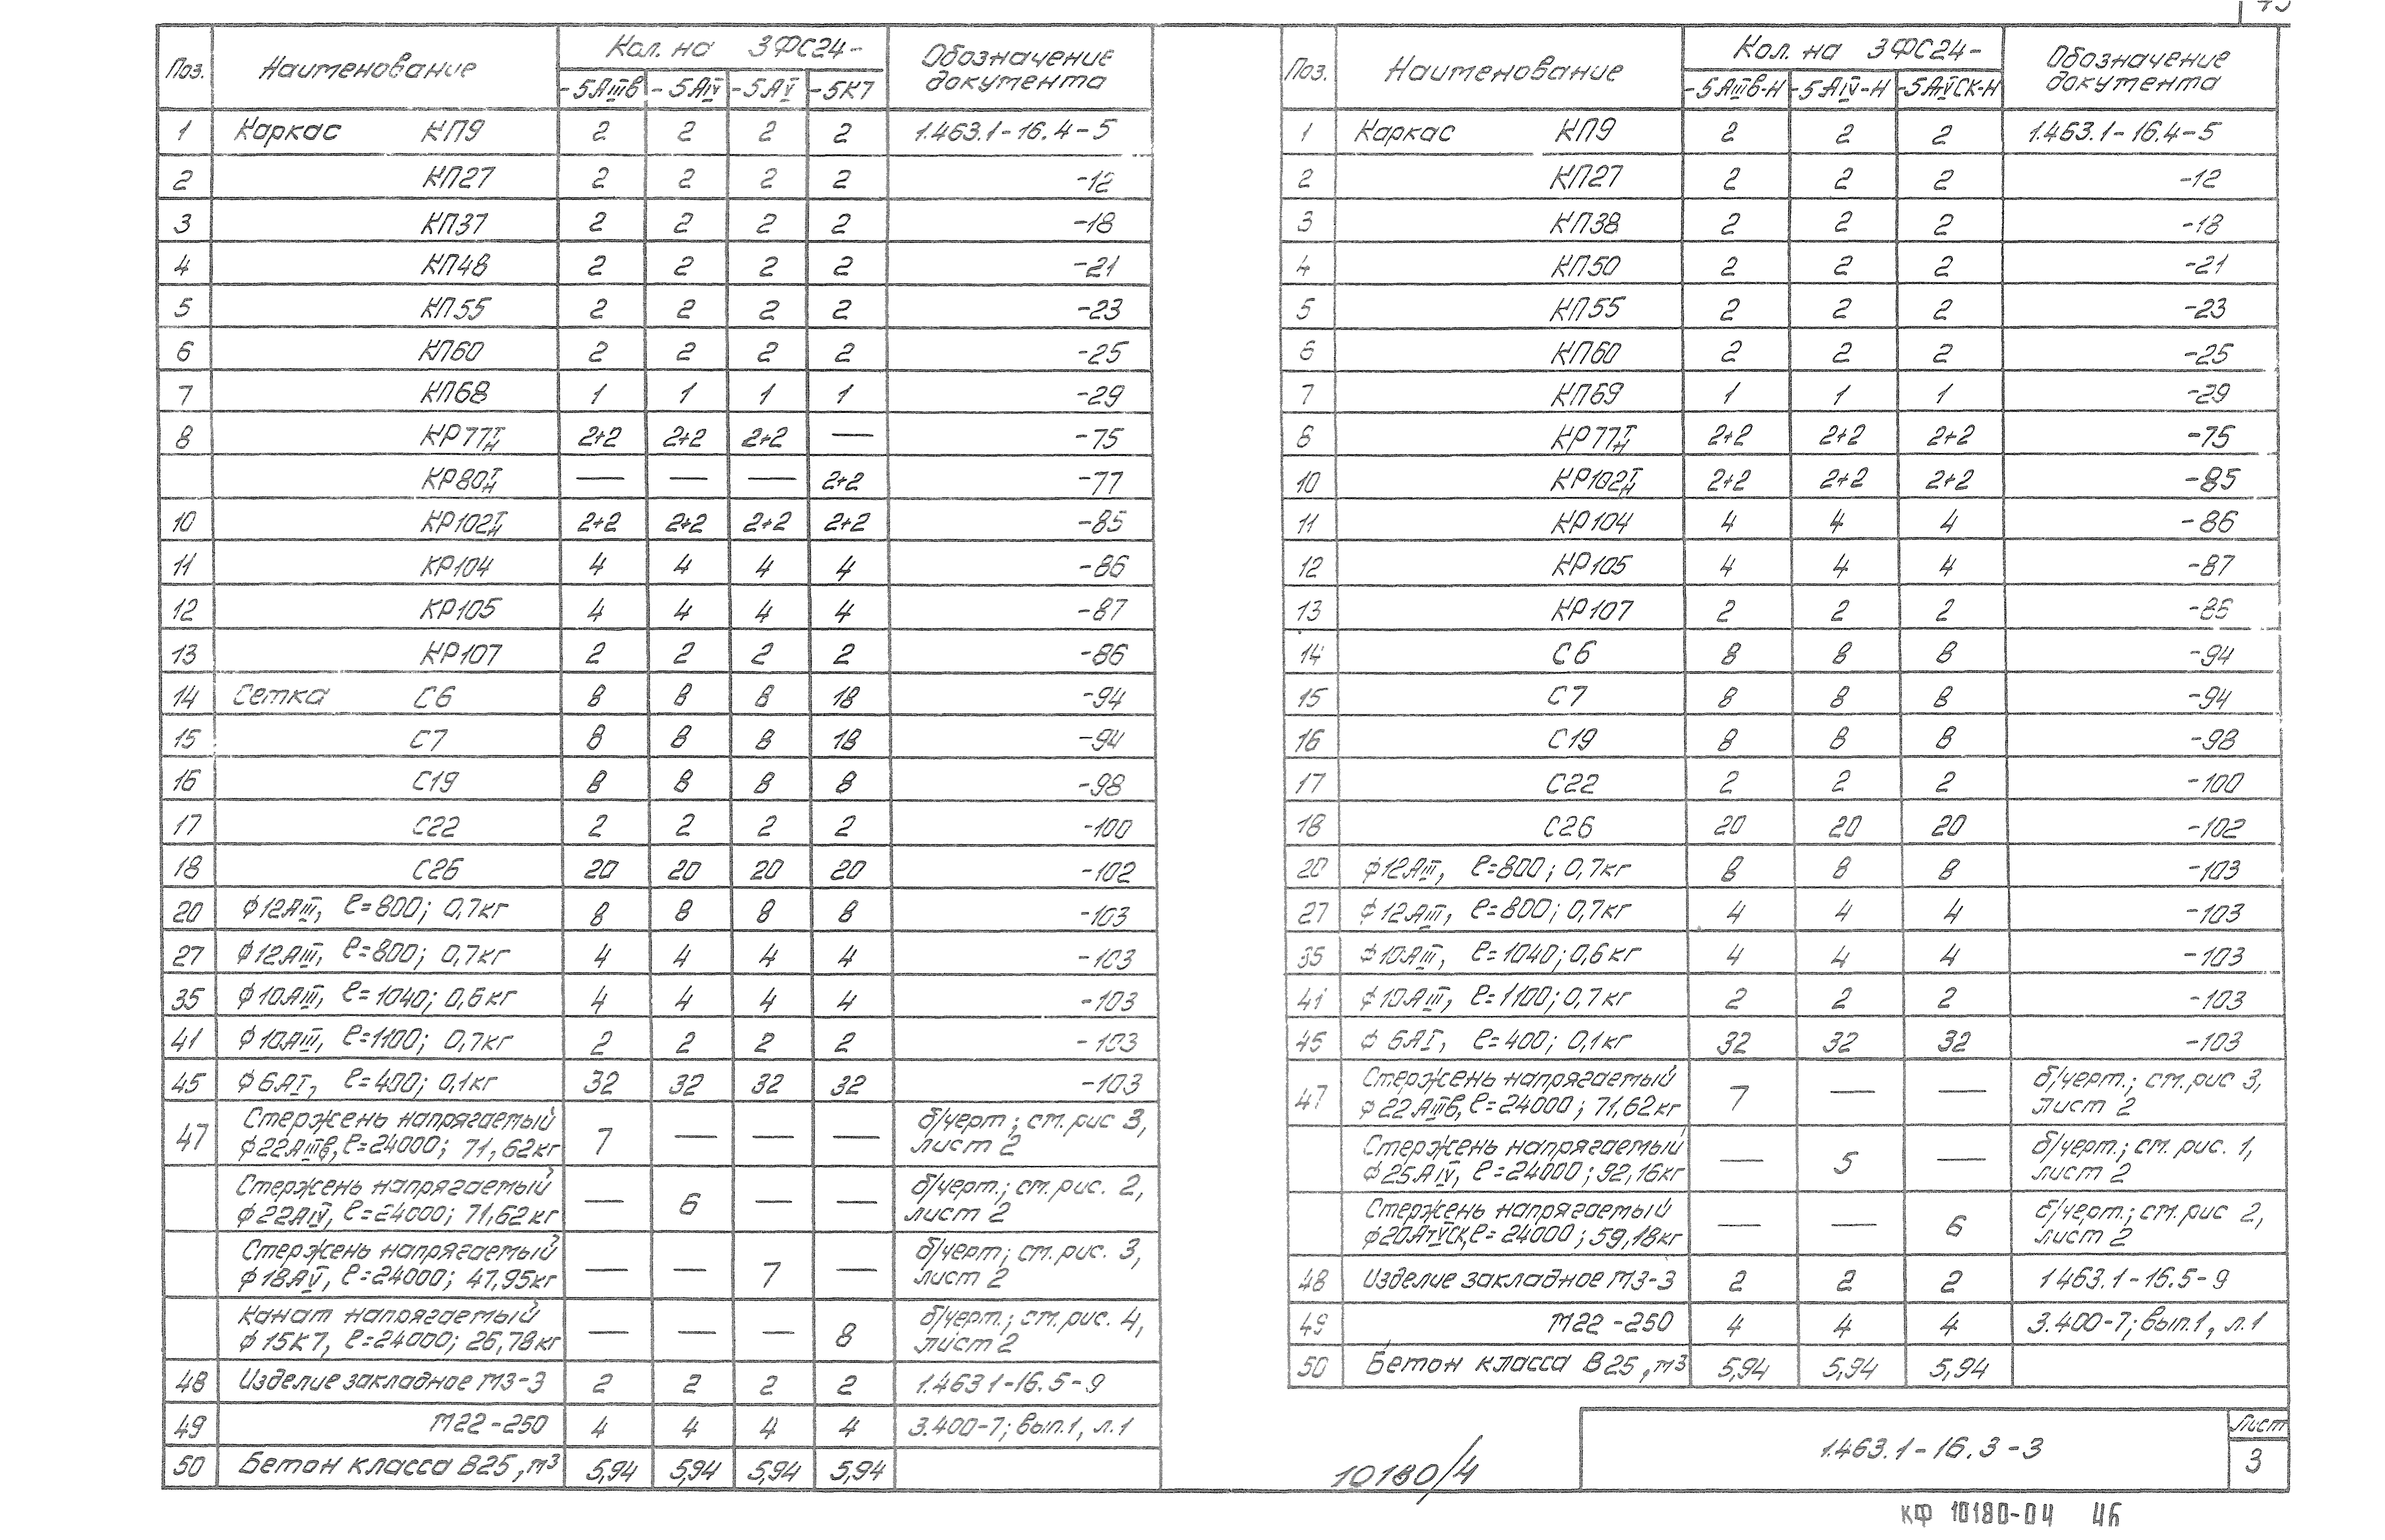 Поз. Наименование Кол. на 3ФС24- Обозначение документа
-5АIIIв -5АIV -5АV -5К7
1 Каркас КП9 2 2 2 2 1.463.1-16.4-5
2 КП27 2 2 2 2 -12
3 КП37 2 2 2 2 -18
4 КП48 2 2 2 2 -21
5 КП55 2 2 2 2 -23
6 КП60 2 2 2 2 -25
7 КП68 1 1 1 1 -29
8 КР77Т/Н 2+2 2+2 2+2 — -75
КР80Т/Н — — — 2+2 -77
10 КР102Т/Н 2+2 2+2 2+2 2+2 -85
11 КР104 4 4 4 4 -86
12 КР105 4 4 4 4 -87
13 КР107 2 2 2 2 -86
14 Сетка С6 8 8 8 18 -94
15 С7 8 8 8 18 -94
16 С19 8 8 8 8 -98
17 С22 2 2 2 2 -100
18 С26 20 20 20 20 -102
20 ф12АIII, ℓ=800; 0,7кг 8 8 8 8 -103
27 ф12АIII, ℓ=800; 0,7кг 4 4 4 4 -103
35 ф10АIII, ℓ=1040; 0,6кг 4 4 4 4 -103
41 ф10АIII, ℓ=1100; 0,7кг 2 2 2 2 -103
45 ф6АI, ℓ=400; 0,1кг 32 32 32 32 -103
47 Стержень напрягаемый ф22АIIIв, ℓ=24000; 71,62кг 7 — — — б/черт; ст. рис 3, лист 2
Стержень напрягаемый ф22АIV, ℓ=24000; 71,62кг — 6 — — б/черт.; ст. рис. 2, лист 2
Стержень напрягаемый ф18АV, ℓ=24000; 47,95кг — — 7 — б/черт; ст. рис. 3, лист 2
Канат напрягаемый ф15К7, ℓ=24000; 26,78кг — — — 8 б/черт.; ст. рис. 4, лист 2
48 Изделие закладное М3-3 2 2 2 2 1.463 1-16.5-9
49 М22-250 4 4 4 4 3.400-7; вып.1, л.1
50 Бетон класса В25, м3 5,94 5,94 5,94 5,94
Поз. Наименование Кол. на 3ФС24- Обозначение документа
-5АIIIв-Н -5АIV-Н -5АтVСК-Н
1 Каркас КП9 2 2 2 1.463.1-16.4-5
2 КП27 2 2 2 -12
3 КП38 2 2 2 -18
4 КП50 2 2 2 -21
5 КП55 2 2 2 -23
6 КП60 2 2 2 -25
7 КП69 1 1 1 -29
8 КР77Т/Н 2+2 2+2 2+2 -75
10 КР102Т/Н 2+2 2+2 2+2 -85
11 КР104 4 4 4 -86
12 КР105 4 4 4 -87
13 КР107 2 2 2 -86
14 С6 8 8 8 -94
15 С7 8 8 8 -94
16 С19 8 8 8 -98
17 С22 2 2 2 -100
18 С26 20 20 20 -102
20 ф12АIII, ℓ=800; 0,7кг 8 8 8 -103
27 ф12АIII, ℓ=800; 0,7кг 4 4 4 -103
35 ф10АIII, ℓ=1040; 0,6кг 4 4 4 -103
41 ф10АIII, ℓ=1100; 0,7кг 2 2 2 -103
45 ф 6АI, ℓ=400; 0,1кг 32 32 32 -103
47 Стержень напрягаемый ф22АIIIв, ℓ=24000; 71,62кг 7 — — б/черт.; ст. рис 3, лист 2
Стержень напрягаемый ф25АIV, ℓ=24000; 92,16кг — 5 — б/черт.; ст. рис. 1, лист 2
Стержень напрягаемый ф20АтVСК, ℓ=24000; 59,18кг — — 6 б/черт.; ст. рис 2, лист 2
48 Изделие закладное М3-3 2 2 2 1 463.1-16.5-9
49 М22-250 4 4 4 3.400-7; вып.1, л.1
50 Бетон класса В25, м3 5,94 5,94 5,94
10180/4
1.463.1-16.3-3
Лист
3
КФ 10180-04 46